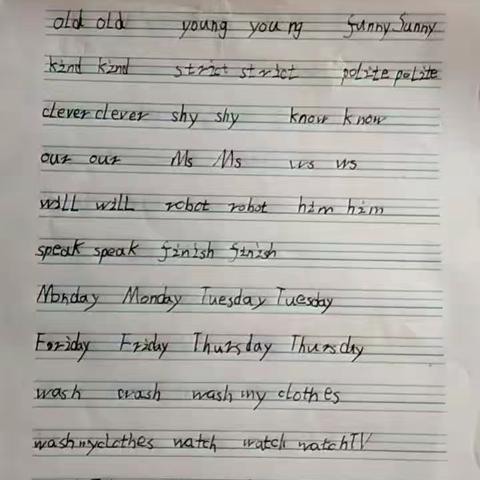 old old young young funny funny
kind kind strict strict polite polite
clever clever shy shy know know
our our Ms Ms us us
will will robot robot him him
speak speak finish finish
Monday Monday Tuesday Tuesday
Foriday Friday Thursday Thursday
wash wash wash my clothes
wash my clothes watch watch watch TV